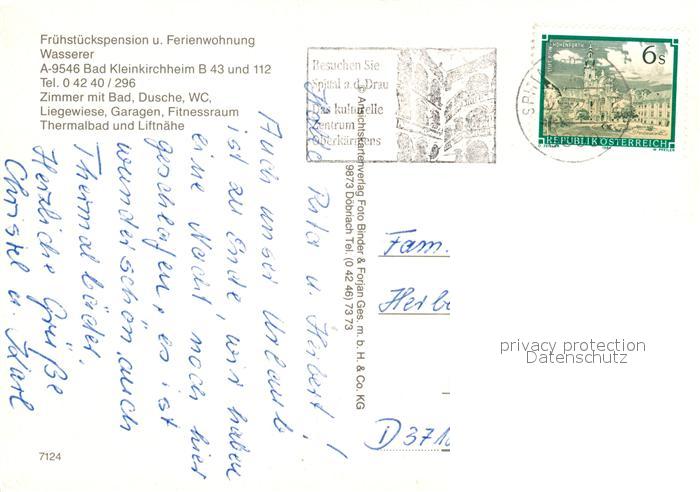 Frühstückspension u. Ferienwohnung
Wasserer
A-9546 Bad Kleinkirchheim B 43 und 112
Tel. 0 42 40 / 296
Zimmer mit Bad, Dusche, WC,
Liegewiese, Garagen, Fitnessraum
Thermalbad und Liftnähe
Besuchen Sie
Spittal a.d. Drau
Das kulturelle
Zentrum
Oberkärntens
6 S
REPUBLIK ÖSTERREICH
© Ansichtskartenverlag Foto Binder & Forjan Ges. m. b. H. & Co. KG
9873 Döbriach Tel. (0 42 46) 73 73
Rita u. Herbert!
Auch unser Urlaub
ist zu Ende, wir haben
eine Nacht noch hier
geschlafen, es ist
wunderschön, auch
Thermalbäder.
Herzliche Grüße
Christel u. Karl
Fam.
Herb
D 371
privacy protection
Datenschutz
7124